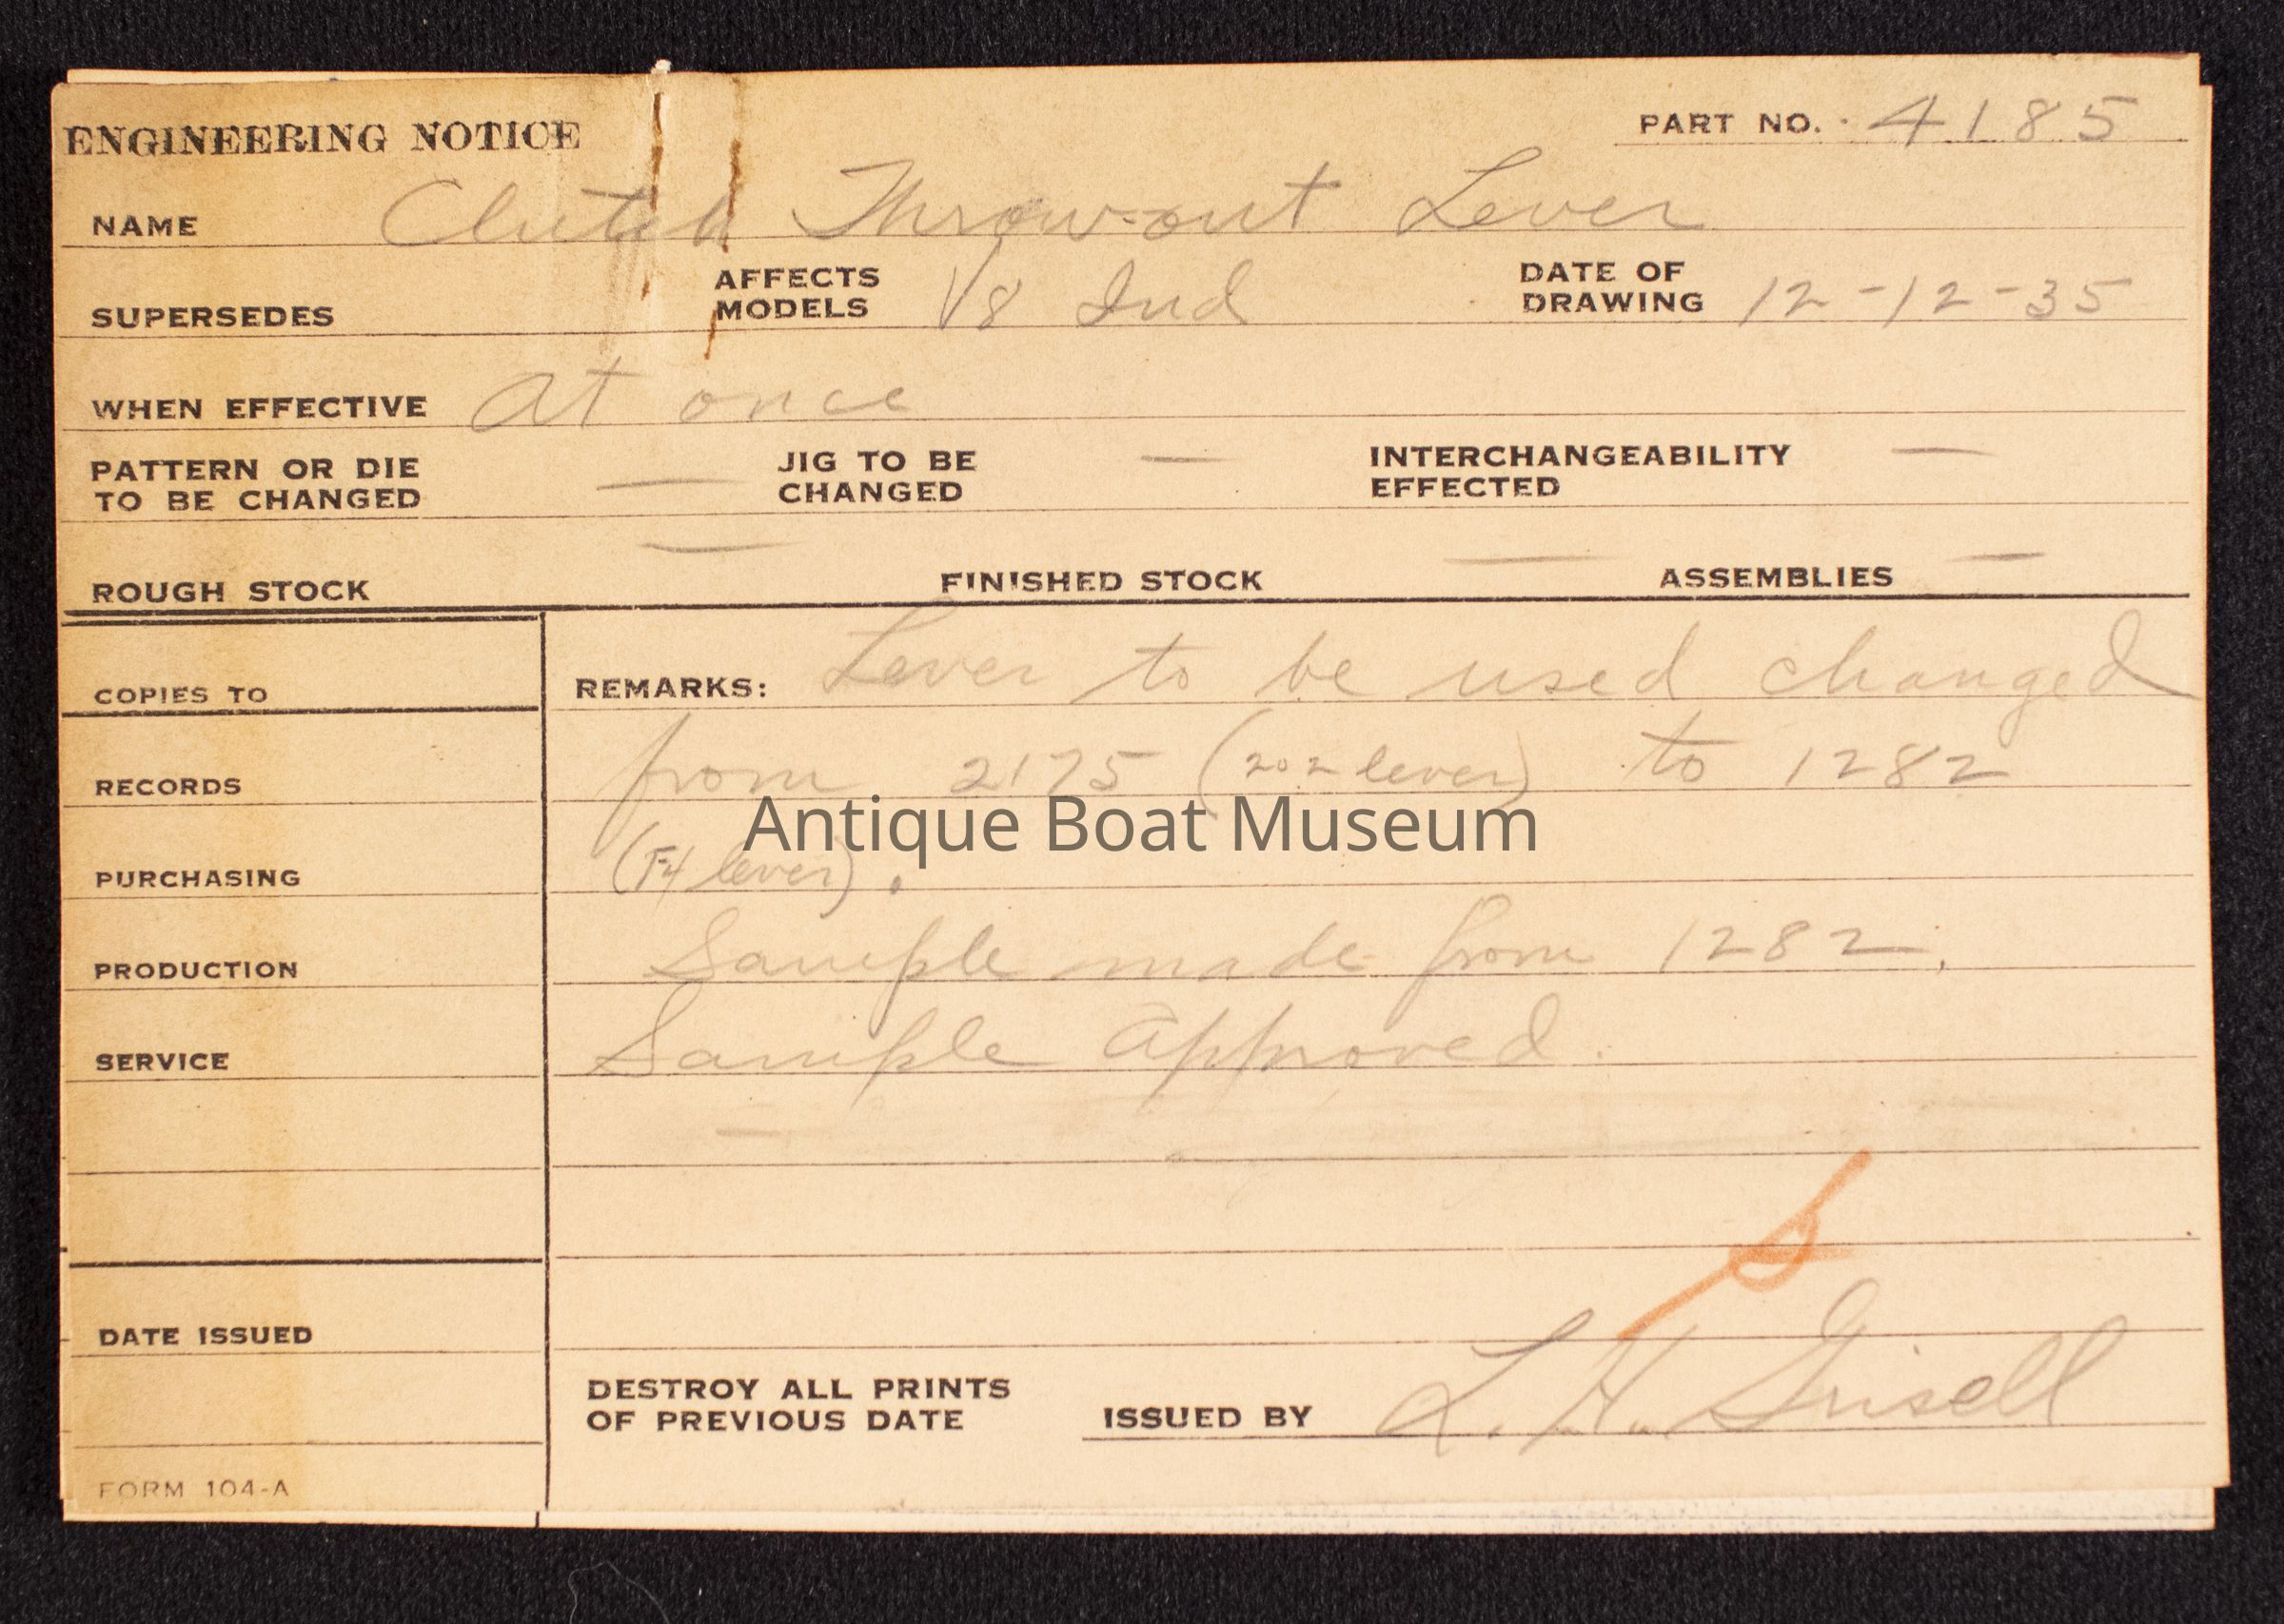 ENGINEERING NOTICE
PART NO. 4185
NAME Clutch Throw-out Lever
SUPERSEDES AFFECTS MODELS V8 Ind DATE OF DRAWING 12-12-35
WHEN EFFECTIVE At once
PATTERN OR DIE TO BE CHANGED — JIG TO BE CHANGED — INTERCHANGEABILITY EFFECTED —
ROUGH STOCK — FINISHED STOCK — ASSEMBLIES —
COPIES TO
RECORDS
PURCHASING
PRODUCTION
SERVICE
DATE ISSUED
FORM 104-A
REMARKS: Lever to be used changed
from 2175 (202 lever) to 1282
(F4 lever).
Sample made from 1282.
Sample Approved.
DESTROY ALL PRINTS
OF PREVIOUS DATE
ISSUED BY L. H. Grisell
Antique Boat Museum